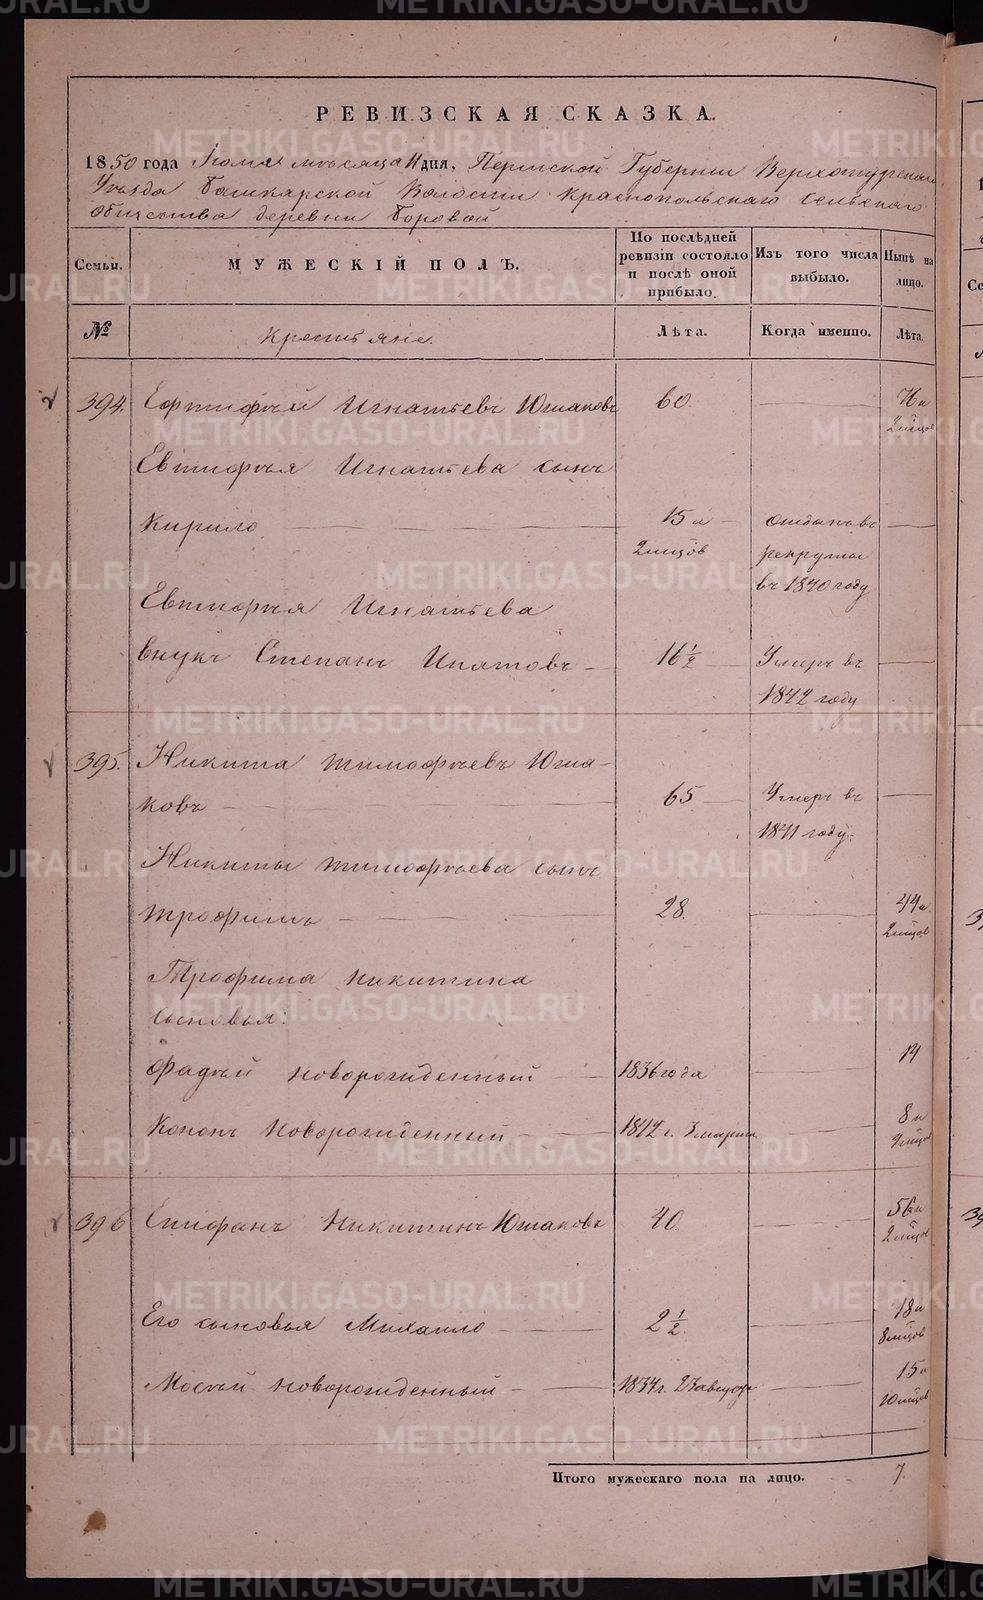 РЕВИЗСКАЯ СКАЗКА.
1850 года Іюля мѣсяца 11 дня, Пермской Губерніи Верхотурскаго
Уѣзда Башкарской Волости Краснопольскаго Сельскаго
Общества деревни Боровой
Семьи.
МУЖЕСКІЙ ПОЛЪ.
По послѣдней ревизіи состояло и послѣ оной прибыло.
Изъ того числа выбыло.
Нынѣ на лицо.
№
Крестьяне.
Лѣта.
Когда именно.
Лѣта.
394. Ефтифѣй Игнатьевъ Юшаковъ 60. 76 и
2 мѣцов
Евтифѣя Игнатьева сынъ
Кирило 15 и отданъ въ
2 мѣцов рекруты
въ 1840 году
Евтифѣя Игнатьева
внукъ Степанъ Ипатовъ 16 1/2 Умеръ въ
1842 году
395. Никита Тимофѣевъ Юша-
ковъ 65 Умеръ въ
1841 году.
Никиты Тимофѣева сынъ
Трофимъ 28. 44 и
2 мѣцов
Трофима Никитина
сыновья:
Фадѣй новорожденный 1836 года 14
Кононъ Новорожденный 1842 г. 8 марта 8 и
4 мѣцов
396 Епифанъ Никитинъ Юшаковъ 40. 56 и
2 мѣцов
Его сыновья Михаило 2 1/2 18 и
8 мѣцов
Мосѣй новорожденный 1834 г. 27 август 15 и
10 мѣцов
Итого мужескаго пола на лицо. 7.
METRIKI.GASO-URAL.RU